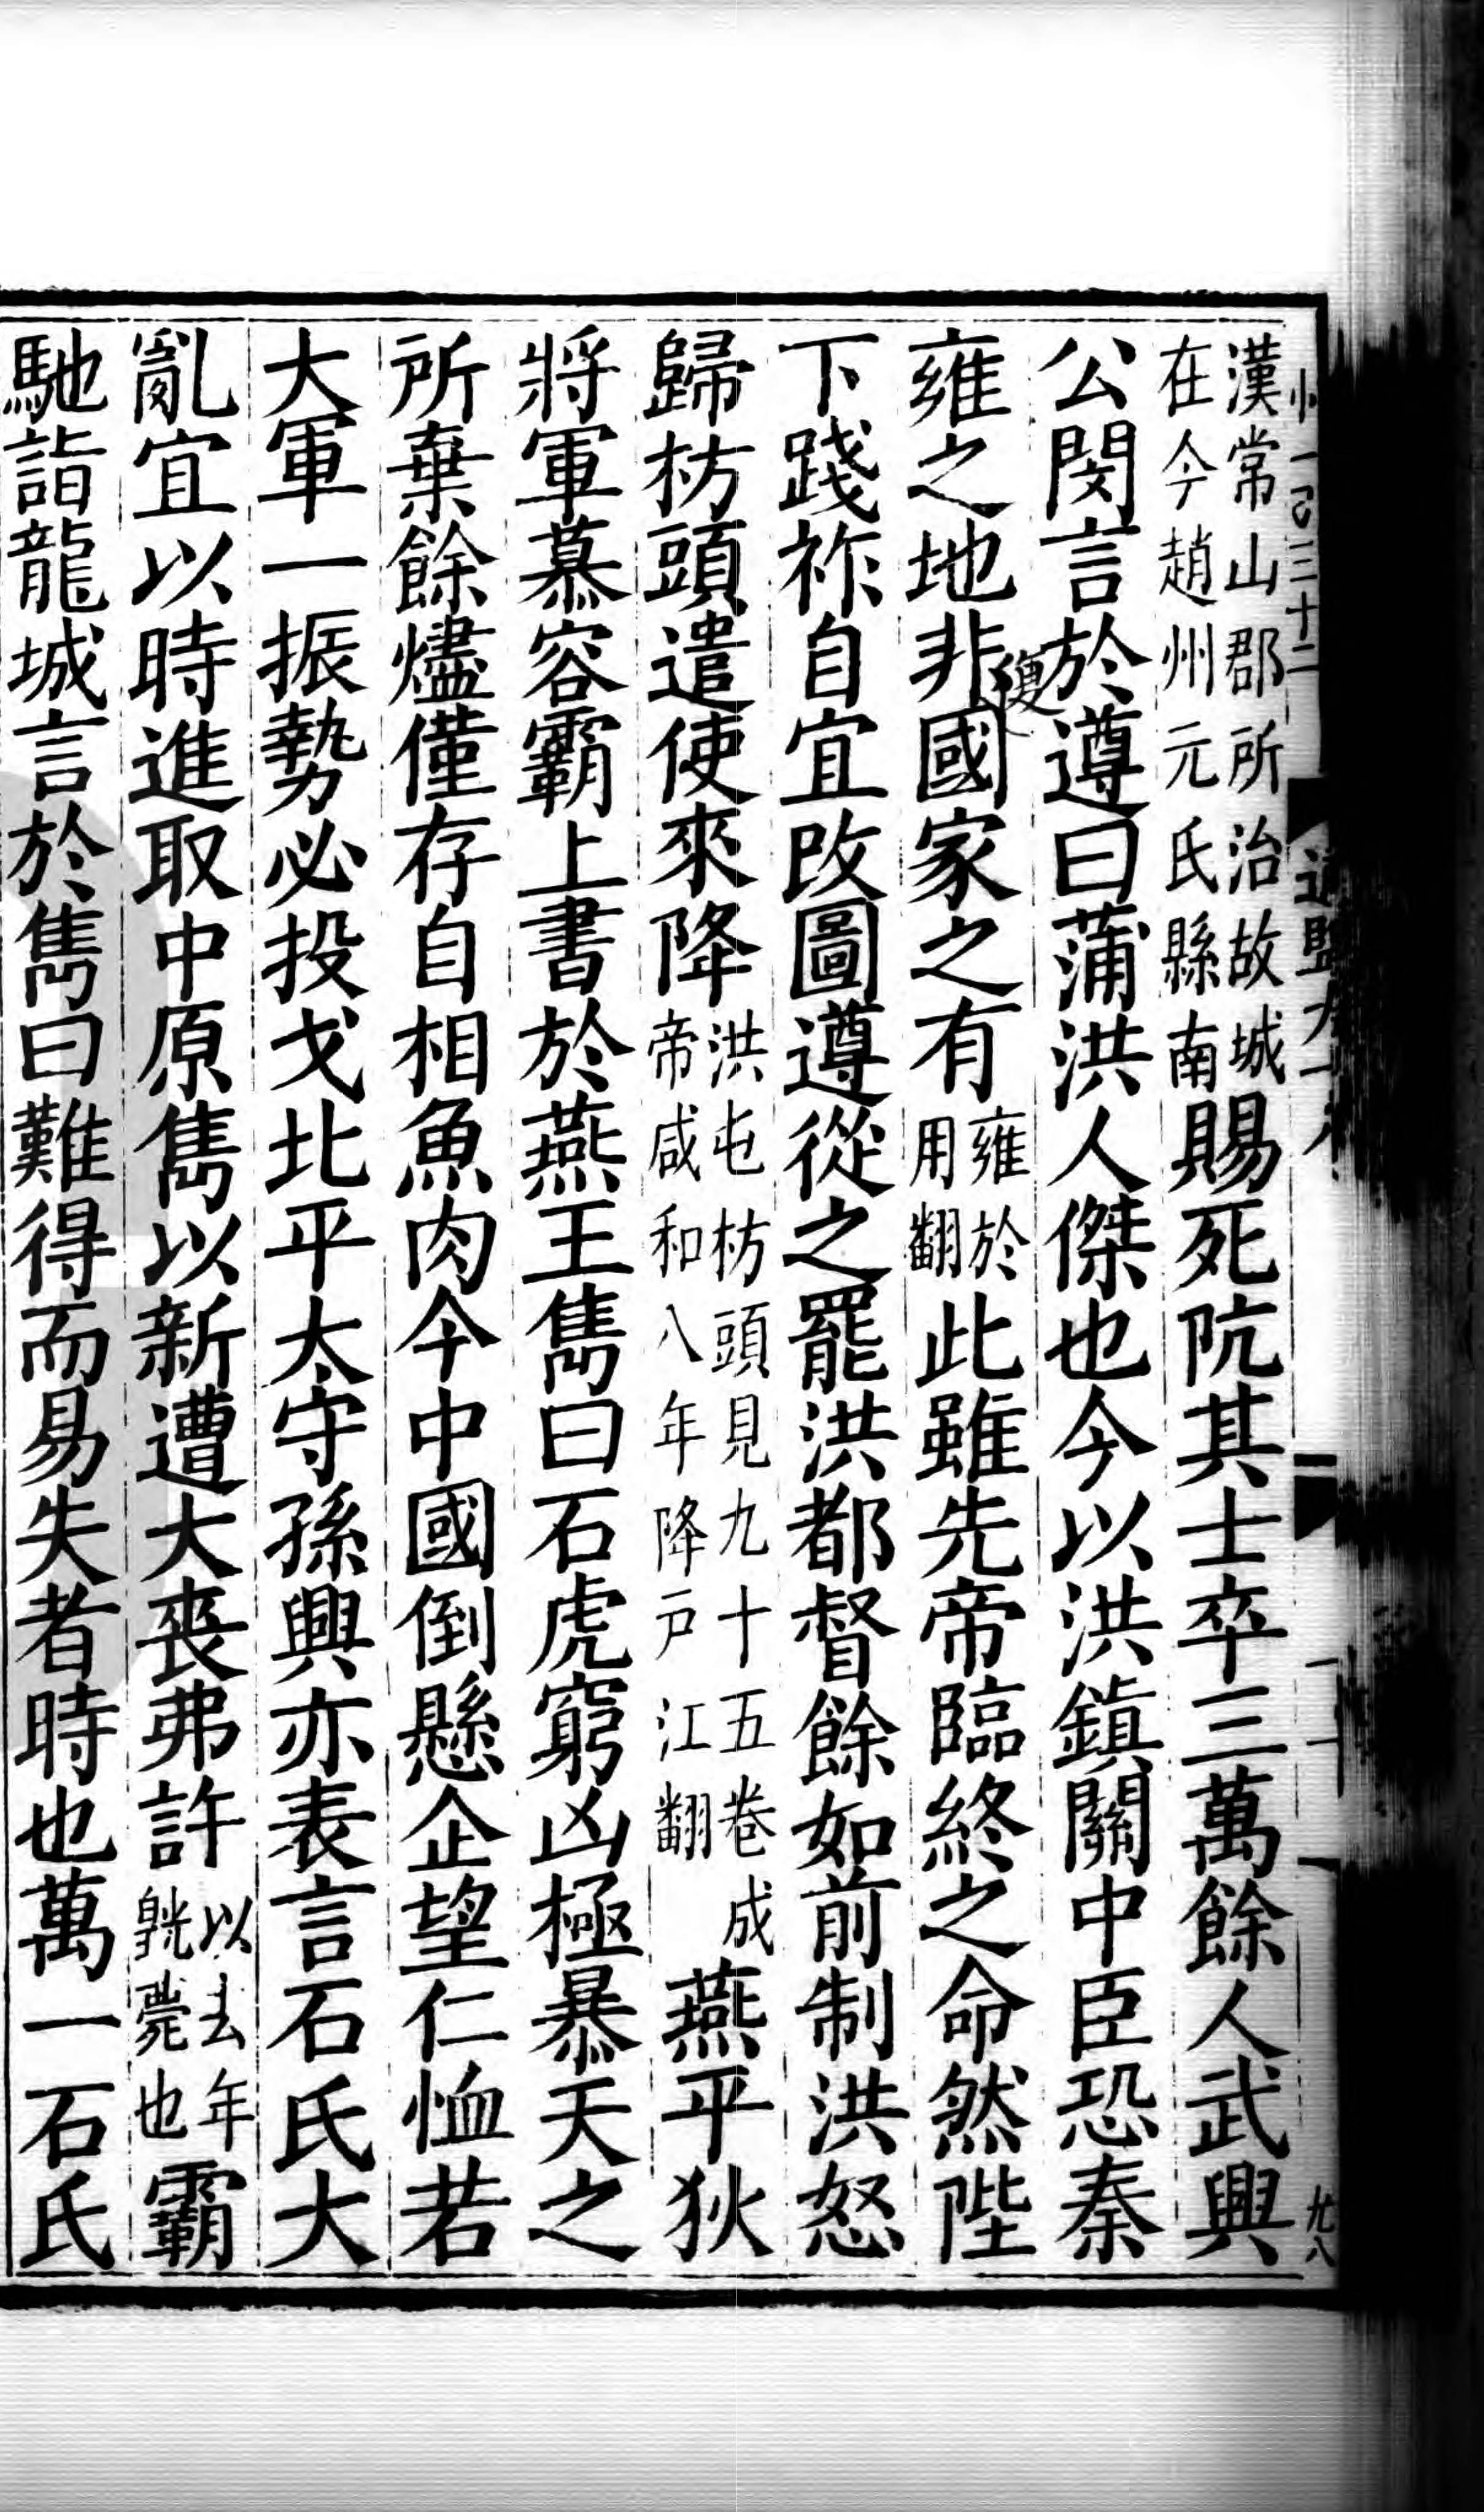 漢常山郡所治故城在今趙州元氏縣南賜死阬其士卒三萬餘人武興
公閔言於遵曰蒲洪人傑也今以洪鎮關中臣恐秦
雍之地非復國家之有雍於用翻此雖先帝臨終之命然陛
下踐祚自宜改圖遵從之罷洪都督餘如前制洪怒
歸枋頭遣使來降洪屯枋頭見九十五卷成帝咸和八年降戸江翻燕平狄
將軍慕容霸上書於燕王雋曰石虎窮凶極暴天之
所棄餘燼僅存自相魚肉今中國倒懸企望仁恤若
大軍一振勢必投戈北平太守孫興亦表言石氏大
亂宜以時進取中原雋以新遭大喪弗許以去年皝薨也霸
馳詣龍城言於雋曰難得而易失者時也萬一石氏